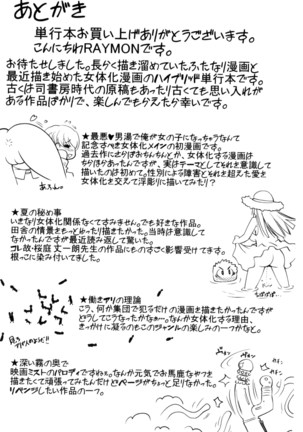 あとがき
単行本お買い上げありがとうございます。
こんにちわRAYMONです。
お待たせしました。長らく描き溜めていたふたなり漫画と
最近描き始めた女体化漫画のハイブリッド単行本です。
古くは司書房時代の原稿もあったり古くても思い入れが
ある作品ばかりで、楽しんでもらえたら幸いです。
★最悪♥男湯で俺が女の子になっちゃうなんて
記念すべき女体化メインの初漫画です。
過去作にさりげあちんちんとか、女体化する漫画は
ちらほらあったんですが、実はテーマとしてそれを意識して
描いたのは初めて。性別による障害とそれを超えた愛を
女体化を交えて浮彫りに描いてみたり?
★夏の秘め事
いきなり女体化関係なくてすみません。でも好きな作品。
田舎の情景をもっとゆったり描きたかった。当時は意識して
なかったんですが最近読み返して驚いた。
コレ故・桜庭 丈一朗先生の作品にものすごく影響受けてます。
根っこに染み付いてました。
★働きアリの理論
こう、何か集団で犯されるだけの漫画を描きたかったんですが
どうしてこうなったかなぁー。なんか女体化する理由、
きっかけに凝るのもこのジャンルの楽しみの一つかなと。
★深い霧の奥で
映画ミストのパロディですねぇ。なんか元気でお馬鹿なやつを
描きたくて頑張ってみたんだけどページがちょっと足りなかった。
リベンジしたい作品の一つ。